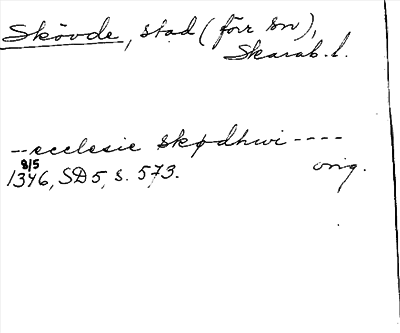 Skövde, stad (förr sn),
Skarab. l.
-- ecclesie skødhwi ----
8/5
1346, SD 5, s. 573. orig.